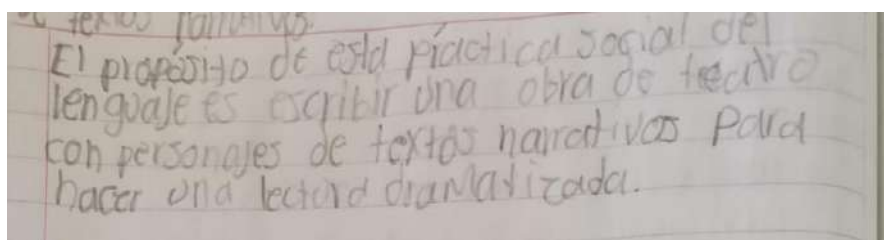 de textos narrativos.
El propósito de esta práctica social del
lenguaje es escribir una obra de teatro
con personajes de textos narrativos para
hacer una lectura dramatizada.